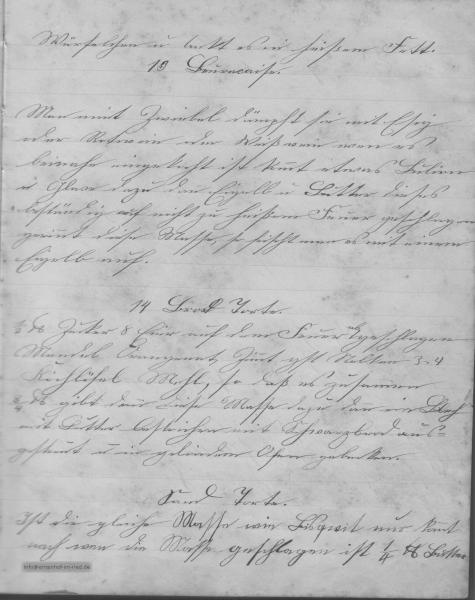 Würfelchen u. backt es in heißem Fett.
13 Bearnaise.
Man nimt Zwiebel dämpft sie mit Essig
oder Rotwein oder Weißwein wen es
beinahe eingekocht ist kmt etwas Bulion
u Glace dazu dan Eigelb u Butter dieses
beständig auf nicht zu heißem Feuer geschlagen
gerint diese Masse, so frischt man es mit einem
Eigelb auf.
14 Brod Torte.
½ ℔ Zuker 8 Eier auf dem Feuer geschlagen
Mandel Orangenat, Zimt, gst Nelken 3-4
Kochlöfel Mehl, so daß es zusamen
¾ ℔ gibt dan diese Masse dazu dan ein Blech
mit Butter bestreichen mit Schwarzbrod aus-
gestreut u in gelindem Ofen gebacken.
Sand Torte.
Ist die gleiche Masse wie Bisqwit nur kmt
noch wen die Masse geschlagen ist ¼ ℔ Butter
info@ernsenhof-im-ried.de